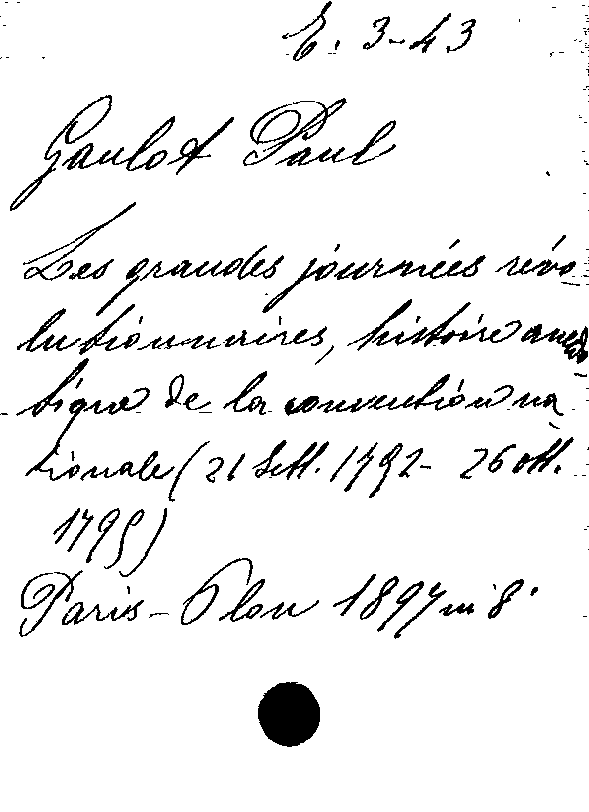 E. 3-43
Gaulot Paul
Les grandes journées révo
lutionnaires, histoire anecdo
tique de la convention na
tionale (21 Sett. 1792 - 26 ott.
1795)
Paris - Plon 1897 in 8°